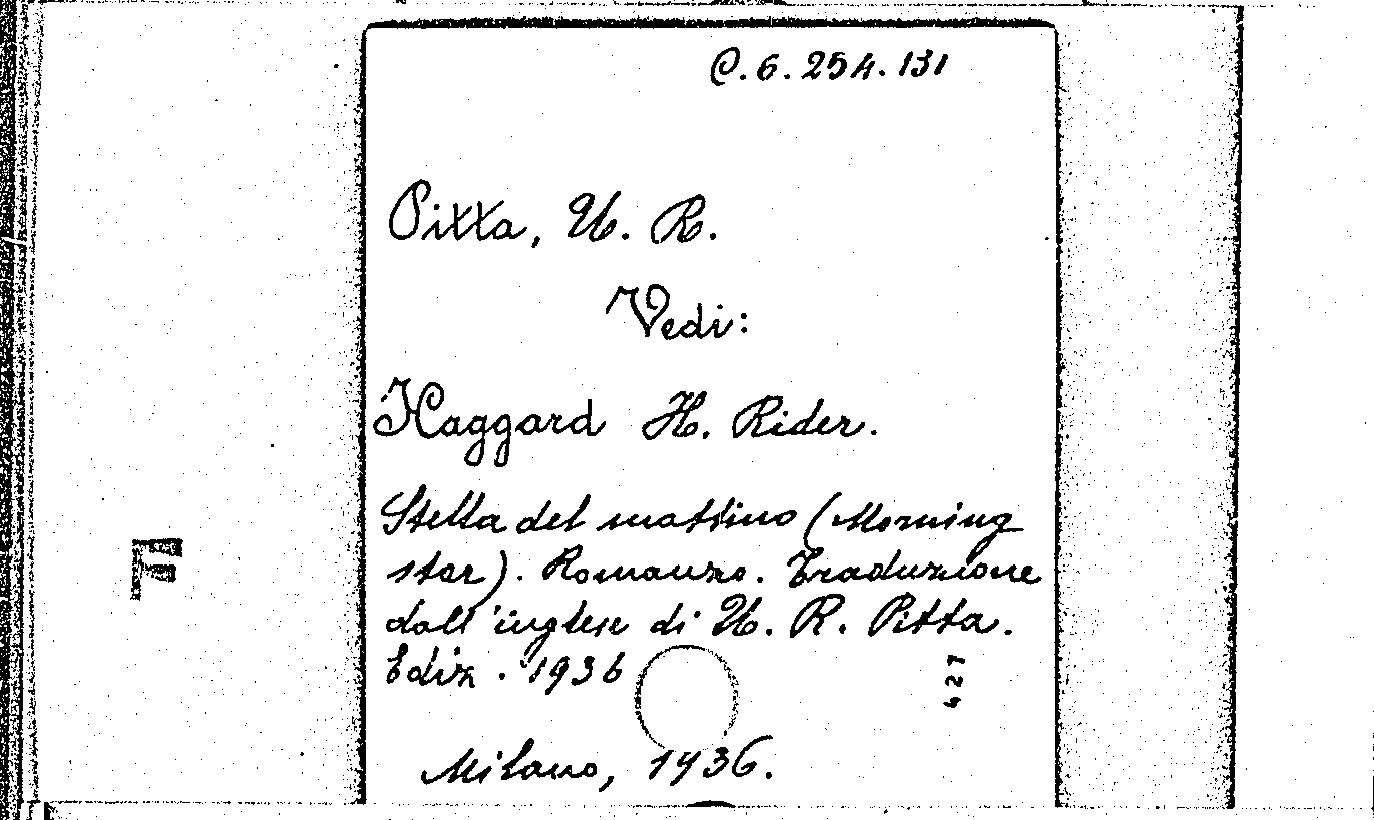 C.6.254.131
Pitta, U. R.
Vedi:
Haggard H. Rider.
Stella del mattino (Morning
star). Romanzo. Traduzione
dall'inglese di U. R. Pitta.
Ediz. 1936
Milano, 1936.
427
F